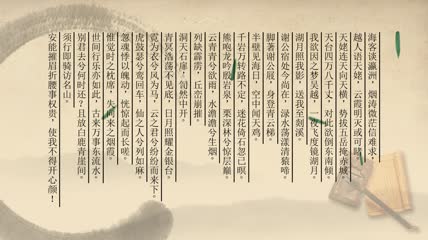 海客谈瀛洲，烟涛微茫信难求，
越人语天姥，云霞明灭或可睹。
天姥连天向天横，势拔五岳掩赤城。
天台四万八千丈，对此欲倒东南倾。
我欲因之梦吴越，一夜飞度镜湖月。
湖月照我影，送我至剡溪。
谢公宿处今尚在，渌水荡漾清猿啼。
脚著谢公屐，身登青云梯。
半壁见海日，空中闻天鸡。
千岩万转路不定，迷花倚石忽已暝。
熊咆龙吟殷岩泉，栗深林兮惊层巅。
云青青兮欲雨，水澹澹兮生烟。
列缺霹雳，丘峦崩摧。
洞天石扉，訇然中开。
青冥浩荡不见底，日月照耀金银台。
霓为衣兮风为马，云之君兮纷纷而来下。
虎鼓瑟兮鸾回车，仙之人兮列如麻。
忽魂悸以魄动，恍惊起而长嗟。
惟觉时之枕席，失向来之烟霞。
世间行乐亦如此，古来万事东流水。
别君去兮何时还？且放白鹿青崖间。
须行即骑访名山。
安能摧眉折腰事权贵，使我不得开心颜！